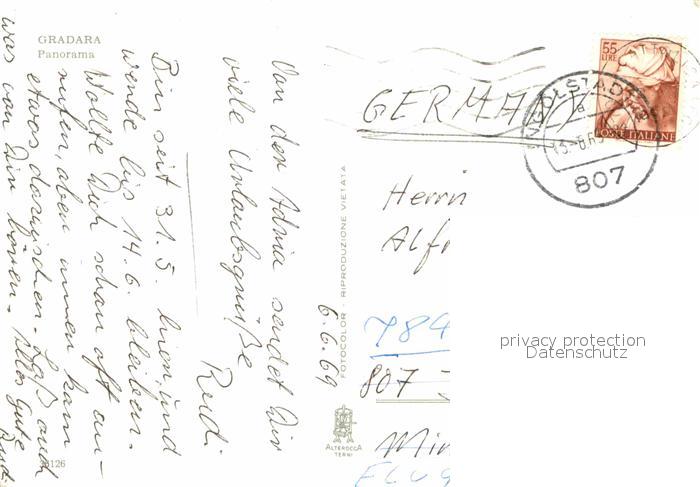 GRADARA
Panorama
Von der Adria sendet Dir
viele Urlaubsgrüße
Rudi
6.6.69
Bin seit 31.5. hier, und
werde bis 14.6. bleiben.
Wollte Dich schon oft an-
rufen, aber immer kam
etwas dazwischen. Laß auch
was von Dir hören. Alles Gute
Rudi
FOTOCOLOR - RIPRODUZIONE VIETATA
ALTEROCCA
TERNI
126
55
LIRE
POSTE ITALIANE
INGOLSTADT
807
GERMANY
Herrn
Alf
784
807
privacy protection
Datenschutz